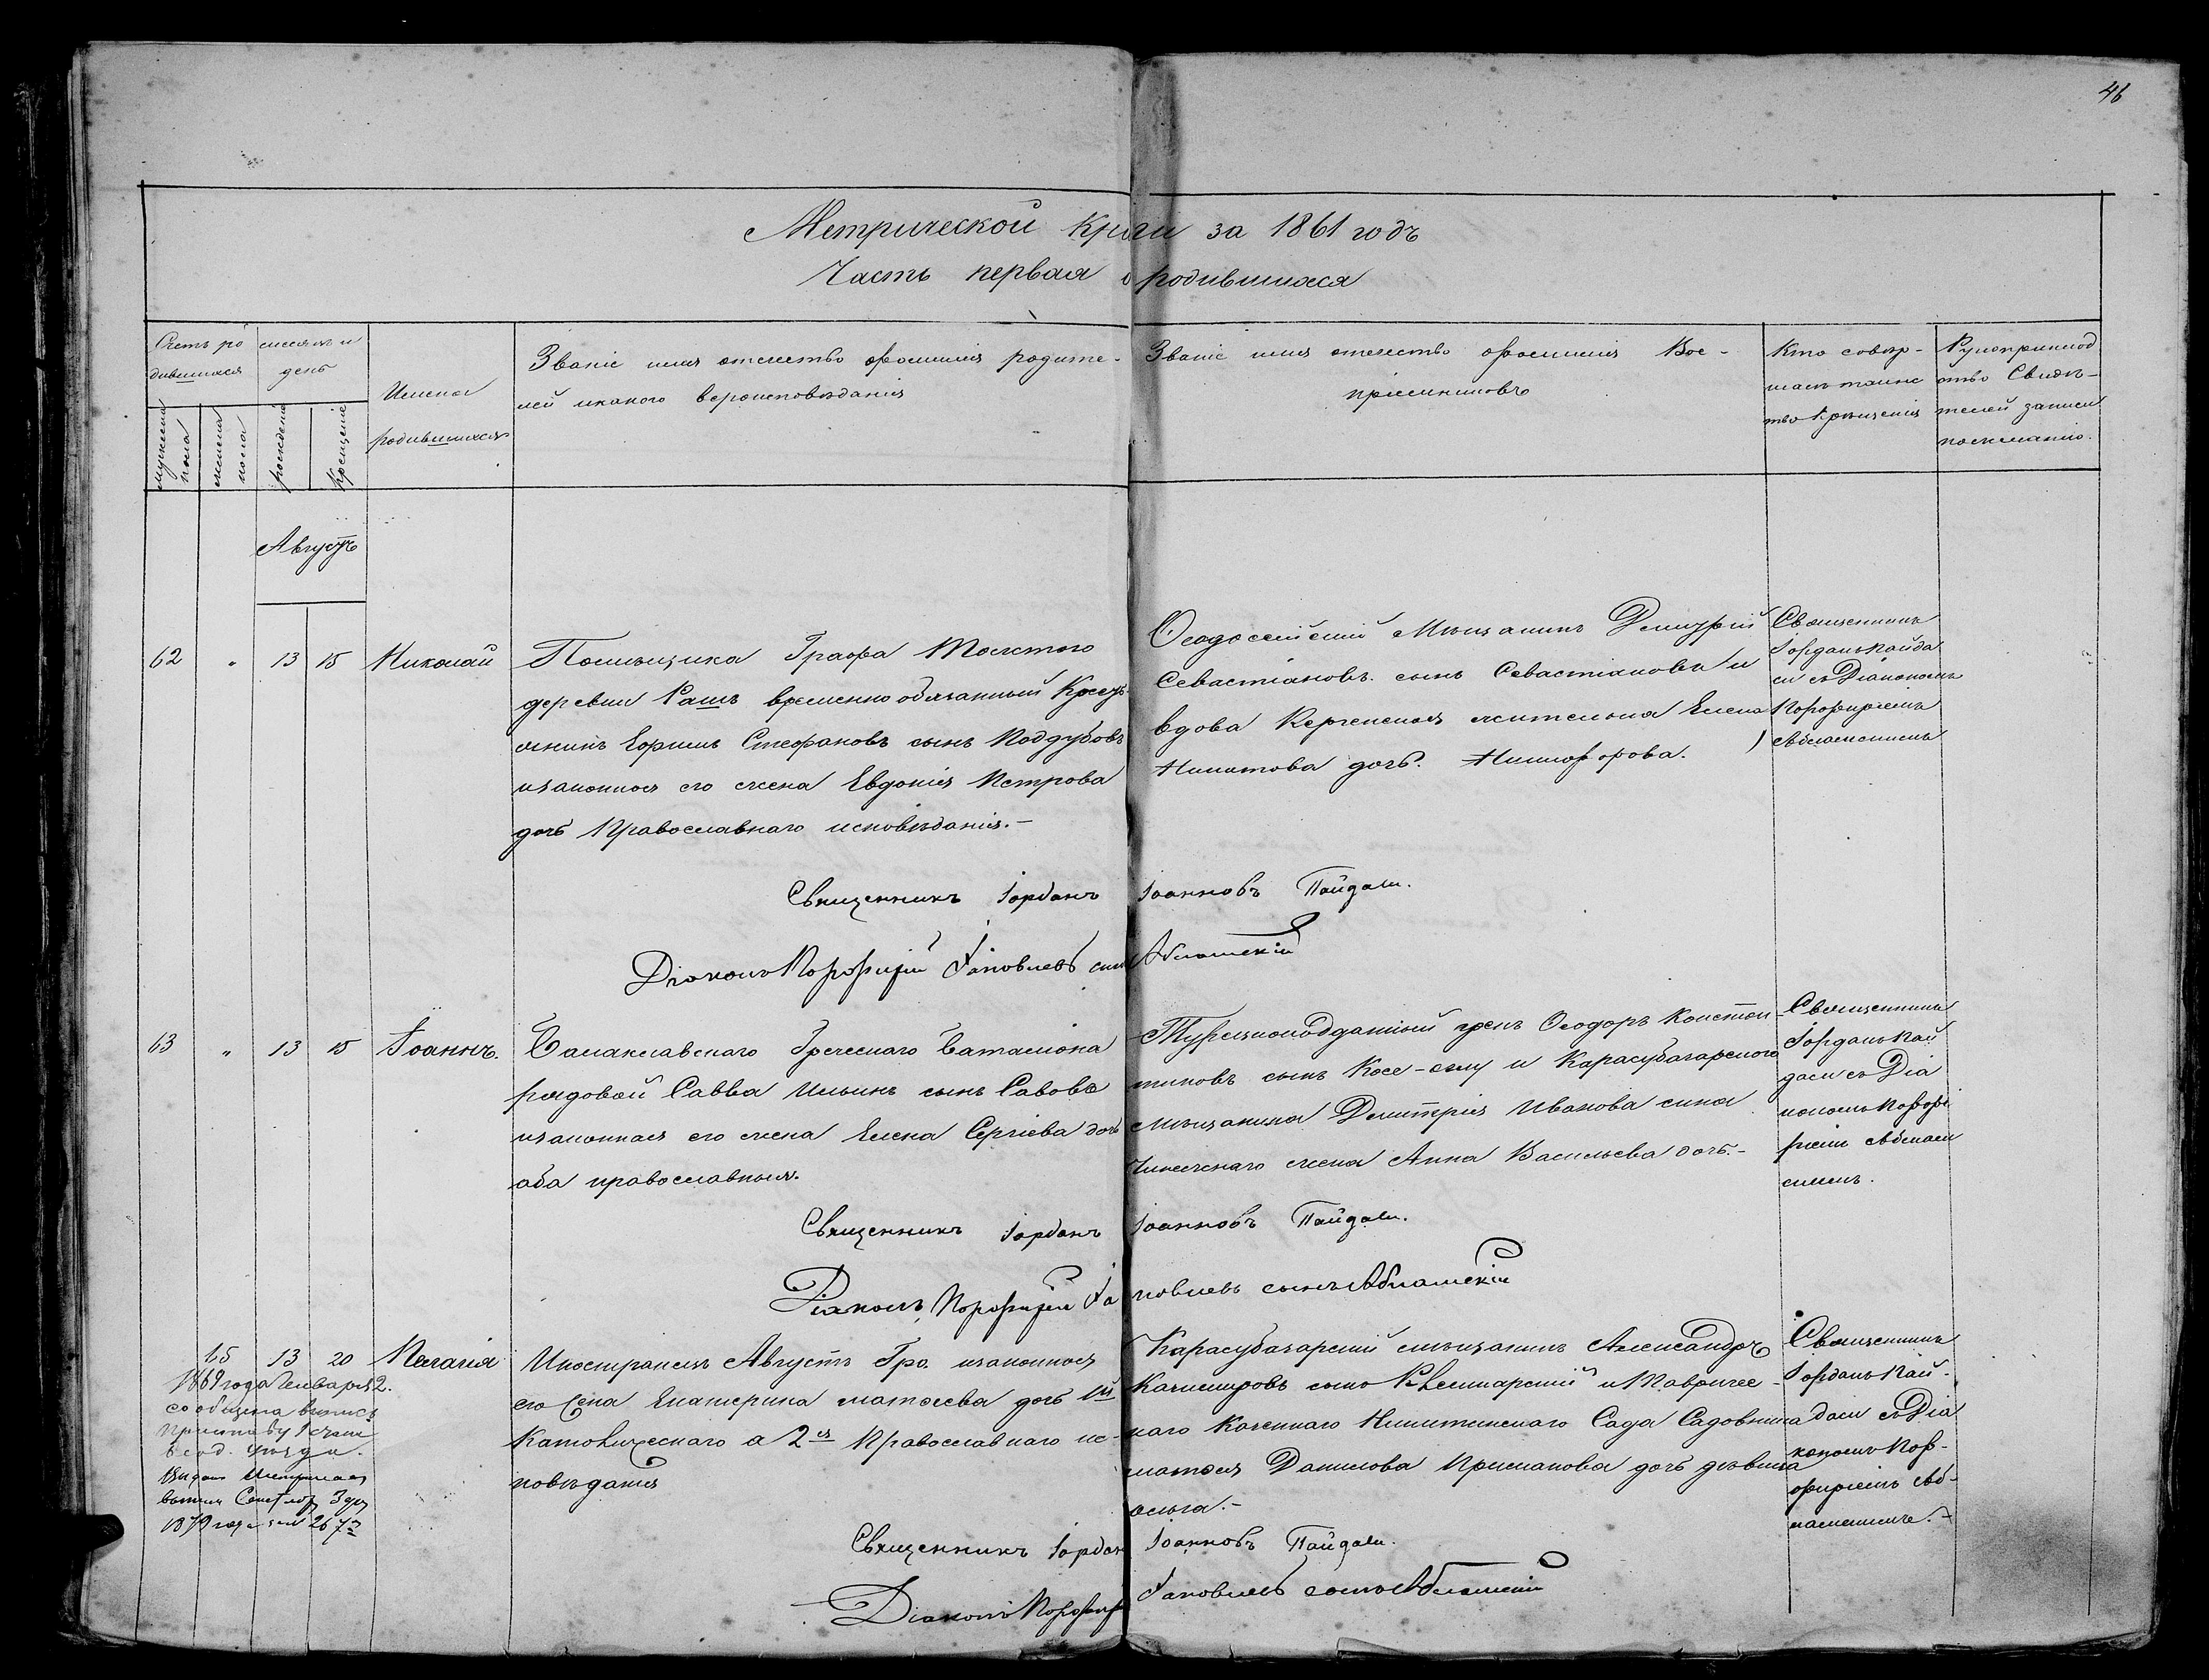 46
Метрической Книги за 1861 годъ
Часть первая о родившихся
Счетъ ро
дившихся
месяцъ и
день
мужеска
пола
женска
пола
рожденія
Крещенія
Имена
родившихся
Званіе имя отчество фамилия родите-
лей икакого вероисповѣданія
Званіе имя отечество фамилия Вос-
пріемниковъ
Кто совер-
шалъ таинс
тво Крещенія
Рукоприклад
ство Свидѣ-
телей записи
пожеланію.
Августъ
62 " 13 15 Николай
Помѣщика Графа Толстого
деревни Рашъ временно обязанный Кресть-
янинъ Ефримъ Стефановъ сынъ Поддубовъ
изаконная его жена Евдокія Петрова
дочь Православнаго исповѣданія.-
Ѳеодосійский Мѣщанинъ Димитрій
Севастіановъ сынъ Севастіановъ и
вдова Керченская жительна Елена
Никитова дочь. Никифорова.
Священникъ
Іорданъ Пайда
си съ Діакономъ
Порфиріемъ
Абламскимъ
Священникъ Іорданъ Іоанновъ Пайдаси.
Діаконъ Порфирій Іаковлевъ сынъ Абламскій
63 " 13 15 Іоаннъ.
Балаклавскаго Греческаго Баталіона
рядовой Савва Ильинъ сынъ Савовъ
изаконная его жена Елена Сергіева дочь
оба православныя.
Турецкоподданый грекъ Ѳеодоръ Констан-
тиновъ сынъ Косе-оглу и Карасубазарского
мѣщанина Димитрія Иванова сына
жена Анна Васильева дочь.-
Священникъ
Іорданъ Пай
даси съ Діа
кономъ Порфи
ріемъ Аблам
скимъ.
Священникъ Іорданъ Іоанновъ Пайдаси.
Діаконъ Порфирій Іаковлевъ сынъ Абламскій
15 13 20 Пелагія
1869 года Января 2.
сообщена выпись
Приставу 1 стана
Ѳеод. уѣзда.
Выдана Метрическая
выпись Сентября 3 дня
1879 года за № 267
Иностранецъ Августъ Гро. изаконная
его жена Екатерина матѳеева дочь 1й
Католическаго а 2ая Православнаго ис-
повѣданія
Карасубазарский мѣщанинъ Александръ
Казимировъ сынъ и Тавричес-
каго Казеннаго Никитинскаго Сада Садовника
матѳея Данилова дочь дѣвица
ольга.-
Священникъ
Іорданъ Пай-
даси съ Діа
кономъ Пор-
фиріемъ Аб-
ламскимъ.-
Священникъ Іорданъ Іоанновъ Пайдаси.
Діаконъ Порфирій Іаковлевъ сынъ Абламскій